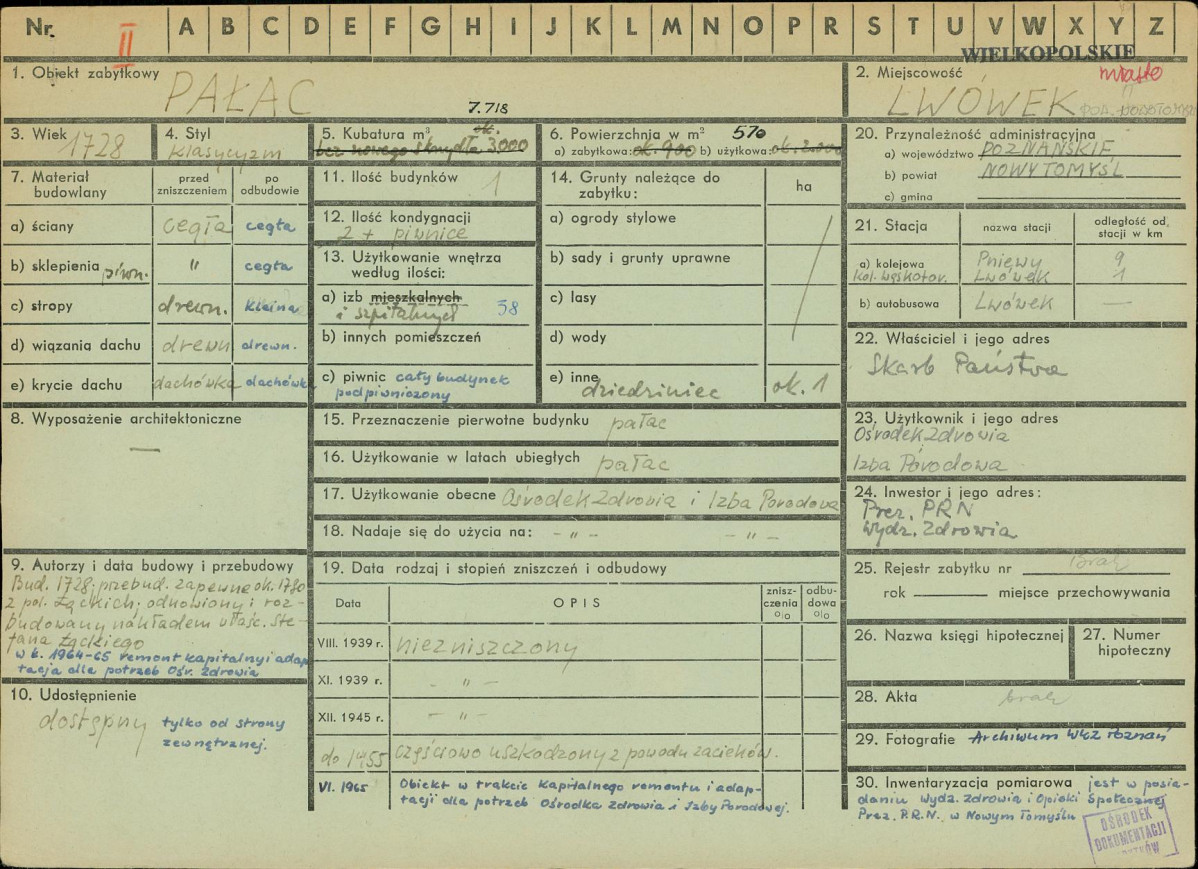 Nr. II A B C D E F G H I J K L M N O P R S T U V W X Y Z
WIELKOPOLSKIE
1. Obiekt zabytkowy PAŁAC
2. Miejscowość miasto
LWÓWEK
3. Wiek 1728
4. Styl klasycyzm
7.718
5. Kubatura m³ ok.
bez nowego skrzydła 3000
6. Powierzchnia w m² 570
a) zabytkowa: ok. 900 b) użytkowa: ok. 2.000
20. Przynależność administracyjna
a) województwo POZNAŃSKIE
b) powiat NOWY TOMYŚL
c) gmina
7. Materiał budowlany
przed zniszczeniem
po odbudowie
a) ściany cegła cegła
b) sklepienia piwn. " cegła
c) stropy drewn. Kleina
d) wiązania dachu drewn drewn.
e) krycie dachu dachówka dachówka
11. Ilość budynków 1
12. Ilość kondygnacji
2 + piwnice
13. Użytkowanie wnętrza
według ilości:
a) izb mieszkalnych
i szpitalnych 58
b) innych pomieszczeń
c) piwnic cały budynek
podpiwniczony
14. Grunty należące do
zabytku:
ha
a) ogrody stylowe
b) sady i grunty uprawne
c) lasy
d) wody
e) inne
dziedziniec ok. 1
21. Stacja
nazwa stacji
odległość od,
stacji w km
a) kolejowa Pniewy 9
kol. wąskotor. Lwówek 1
b) autobusowa Lwówek —
22. Właściciel i jego adres
Skarb Państwa
23. Użytkownik i jego adres
Ośrodek Zdrowia
Izba Porodowa
24. Inwestor i jego adres:
Prez. PRN
Wydz. Zdrowia
8. Wyposażenie architektoniczne
—
15. Przeznaczenie pierwotne budynku pałac
16. Użytkowanie w latach ubiegłych pałac
17. Użytkowanie obecne Ośrodek Zdrowia i Izba Porodowa
18. Nadaje się do użycia na: - " - - " -
9. Autorzy i data budowy i przebudowy
Bud. 1728; przebud. zapewne ok. 1780
z pol. Łąckich; odnowiony i roz-
budowany nakładem właśc. Ste-
fana Łąckiego
w l. 1964-65 remont kapitalny i adap
tacja dla potrzeb Ośr. Zdrowia
10. Udostępnienie
dostępny tylko od strony
zewnętrznej.
19. Data rodzaj i stopień zniszczeń i odbudowy
Data
OPIS
znisz-
czenia
o/o
odbu-
dowa
o/o
VIII. 1939 r. niezniszczony
XI. 1939 r. - " -
XII. 1945 r. - " -
do 1955 częściowo uszkodzony z powodu zacieków.
VI. 1965 Obiekt w trakcie kapitalnego remontu i adap-
tacji dla potrzeb Ośrodka Zdrowia i Izby Porodowej.
25. Rejestr zabytku nr Brak
rok miejsce przechowywania
26. Nazwa księgi hipotecznej
27. Numer
hipoteczny
28. Akta brak
29. Fotografie Archiwum WKZ Poznań
30. Inwentaryzacja pomiarowa jest w posia-
daniu Wydz. Zdrowia i Opieki Społecznej
Prez. P.R.N. w Nowym Tomyślu
OŚRODEK
DOKUMENTACJI